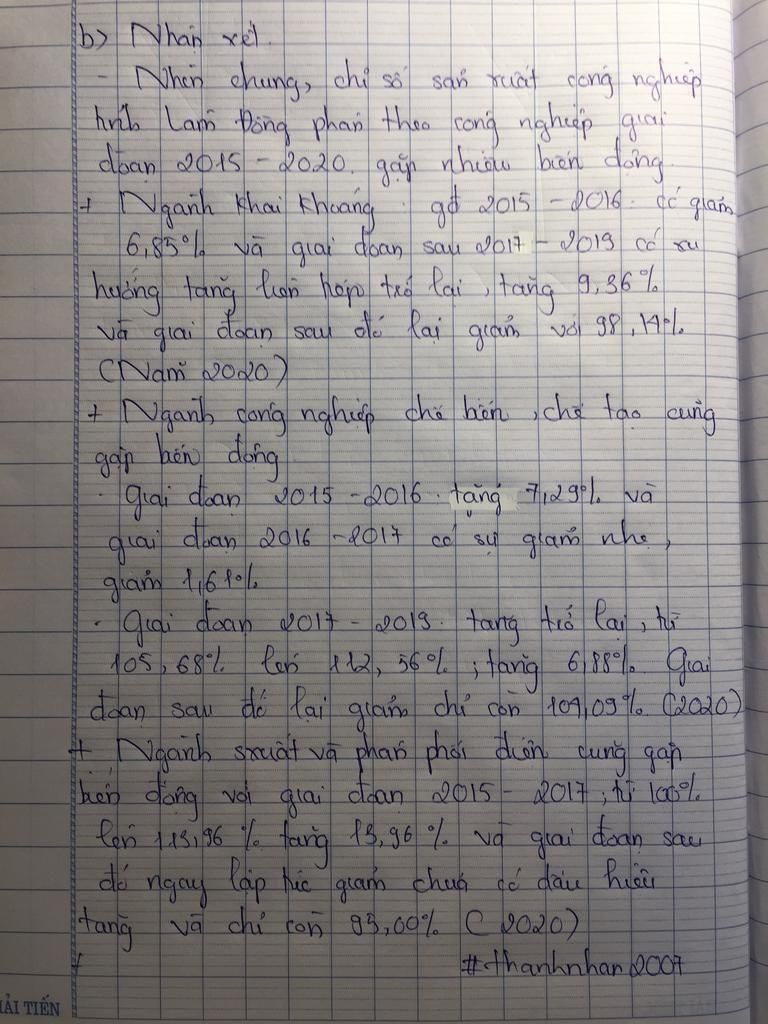 b) Nhận xét.
- Nhìn chung, chỉ số sản xuất công nghiệp
tỉnh Lâm Đồng phân theo công nghiệp giai
đoạn 2015 - 2020. gặp nhiều biến động.
+ Ngành khai khoáng. gđ 2015 - 2016. có giảm
6,85% và giai đoạn sau 2017 - 2019 có xu
hướng tăng liên hợp trở lại, tăng 9,36%
và giai đoạn sau đó lại giảm với 98,14%
(Năm 2020)
+ Ngành công nghiệp chế biến, chế tạo cũng
gặp biến động
. Giai đoạn 2015 - 2016. tăng 7,29% và
giai đoạn 2016 - 2017 có sự giảm nhẹ,
giảm 1,61%.
. Giai đoạn 2017 - 2019. tăng trở lại, từ
105,68% lên 112,56%; tăng 6,88%. Giai
đoạn sau đó lại giảm chỉ còn 101,09%. (2020)
+ Ngành sxuất và phân phối điện cũng gặp
biến động với giai đoạn 2015 - 2017; từ 100%
lên 113,96% tăng 13,96% và giai đoạn sau
đó ngay lập tức giảm chưa có dấu hiệu
tăng và chỉ còn 95,00% (2020)
+ #thanhnhan2007
ẢI TIẾN